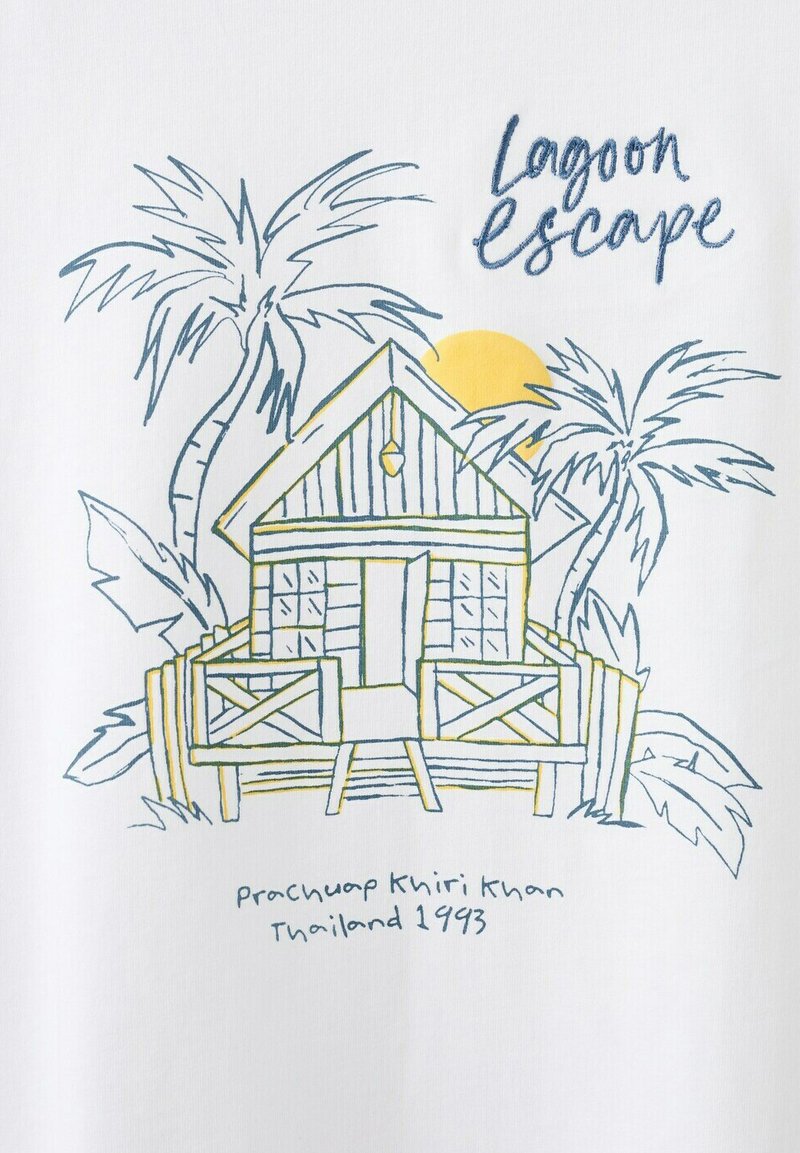 Lagoon
escape
Prachuap Khiri Khan
Thailand 1993